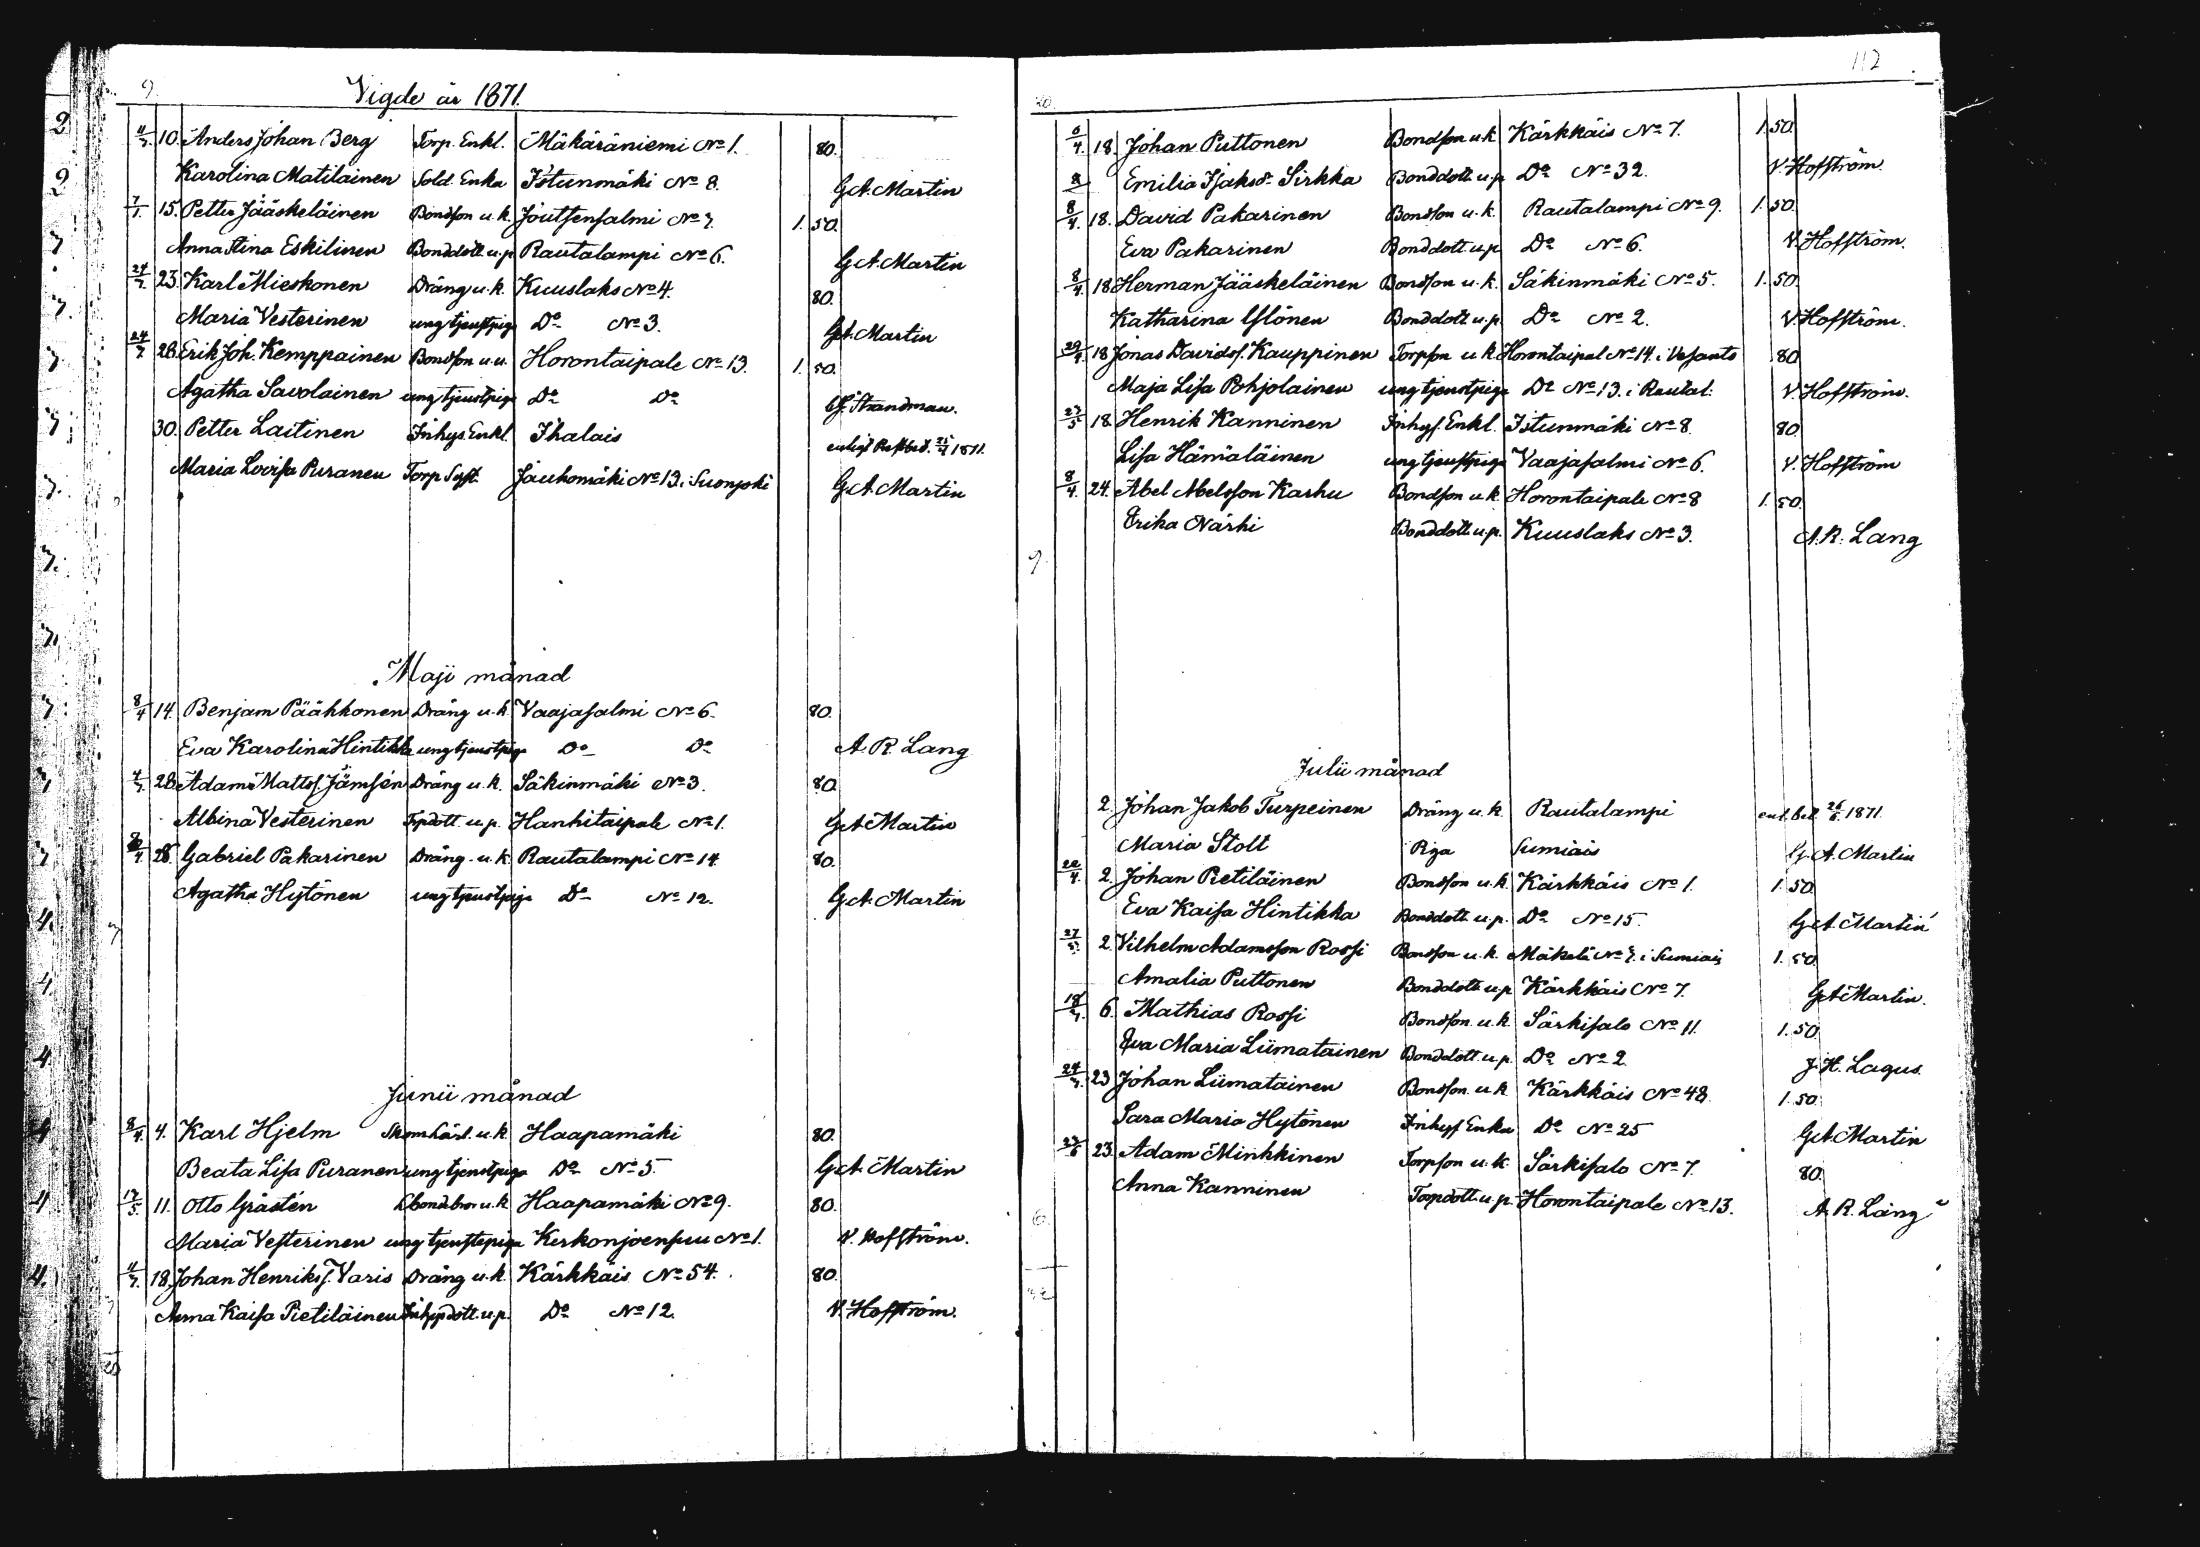 9.
Vigde år 1871.
10. Anders Johan Berg Torp. Enkl. Mäkäräniemi No 1. 80.
Karolina Matilainen Sold. Enka Istunmäki No 8. G.A. Martin
15. Petter Jääskeläinen Bondson u.k. Joutsensalmi No 7. 1. 50.
Anna Stina Eskilinen Bonddott. u.p. Rautalampi No 6. G.A. Martin
23. Karl Mieskonen Dräng u.k. Kuuslaks No 4. 80.
Maria Vesterinen ung tjenstpiga Do No 3. G.A. Martin
28. Erik Joh. Kemppainen Bondson u.u. Horontaipale No 13. 1. 50.
Agatha Savolainen ung tjenstpiga Do Do Strandman.
30. Petter Laitinen Inhys. Enkl. Ihalais
Maria Lovisa Puranen Torp Jauhomäki No 13. i G.A. Martin
Maji månad
8/4 14. Benjam Pääkkonen Dräng u.k. Vaajasalmi No 6. 80.
Eva Karolina Hintikka ung tjenstpiga Do Do A.R. Lang
28. Adam Matts. Jämsén Dräng u.k. Säkinmäki No 3. 80.
Albina Vesterinen Tpdott. u.p. Hanhitaipale No 1. G.A. Martin
28. Gabriel Pakarinen Dräng u.k. Rautalampi No 14. 80.
Agatha Hytönen ung tjenstpiga Do No 12. G.A. Martin
Junii månad
8/4 4. Karl Hjelm u.k. Haapamäki 80.
Beata Lisa Puranen ung tjenstpiga Do No 5. G.A. Martin
11. Otto Gråstén u.k. Haapamäki No 9. 80.
Maria Vesterinen ung tjenstepiga Kerkonjoensuu No 1. V. Hofström.
18. Johan Henriks. Varis Dräng u.k. Kärkkäis No 54. 80.
Anna Kaisa Pietiläinen Inhysdott. u.p. Do No 12. V. Hofström.
112
18. Johan Puttonen Bondson u.k. Kärkkäis No 7. 1. 50.
Emilia Isaksd. Sirkka Bonddott. u.p. Do No 32. V. Hofström.
8/4 18. David Pakarinen Bondson u.k. Rautalampi No 9. 1. 50.
Eva Pakarinen Bonddott. u.p. Do No 6. V. Hofström.
8/4 18. Herman Jääskeläinen Bondson u.k. Säkinmäki No 5. 1. 50.
Katharina Ylönen Bonddott. u.p. Do No 2. V. Hofström.
18. Jonas Davids. Kauppinen Torpson u.k. Horontaipal No 14. i Vesanto 80.
Maja Lisa Pohjolainen ung tjenstpiga Do No 13. i Rautal: V. Hofström.
27/5 18. Henrik Kanninen Inhys. Enkl. Istunmäki No 8. 80.
Lisa Hämäläinen ung tjenstpiga Vaajasalmi No 6. V. Hofström
8/4 24. Abel Abelsson Karhu Bondson u.k. Horontaipale No 8 1. 50.
Erika Närhi Bonddott. u.p. Kuuslaks No 3. A.R. Lang
Julii månad
2. Johan Jakob Turpeinen Dräng u.k. Rautalampi enl. bet. 26/6 1871.
Maria Stolt Piga Sumiais G.A. Martin
2. Johan Pietiläinen Bondson u.k. Kärkkäis No 1. 1. 50.
Eva Kaisa Hintikka Bonddott. u.p. Do No 15. G.A. Martin
27/5 2. Vilhelm Adamsson Rossi Bondson u.k. Mäkelä No 7. i Sumiais 1. 50.
Amalia Puttonen Bonddott. u.p. Kärkkäis No 7. G.A. Martin.
6. Mathias Rossi Bondson. u.k. Särkisalo No 11. 1. 50.
Eva Maria Liimatainen Bonddott. u.p. Do No 2. J.H. Lagus.
23. Johan Liimatainen Bondson. u.k. Kärkkäis No 48. 1. 50.
Sara Maria Hytönen Inhys Enka Do No 25 G.A. Martin
23. Adam Minkkinen Torpson u.k. Särkisalo No 7. 80.
Anna Kanninen Torpdott. u.p. Horontaipale No 13. A.R. Lang